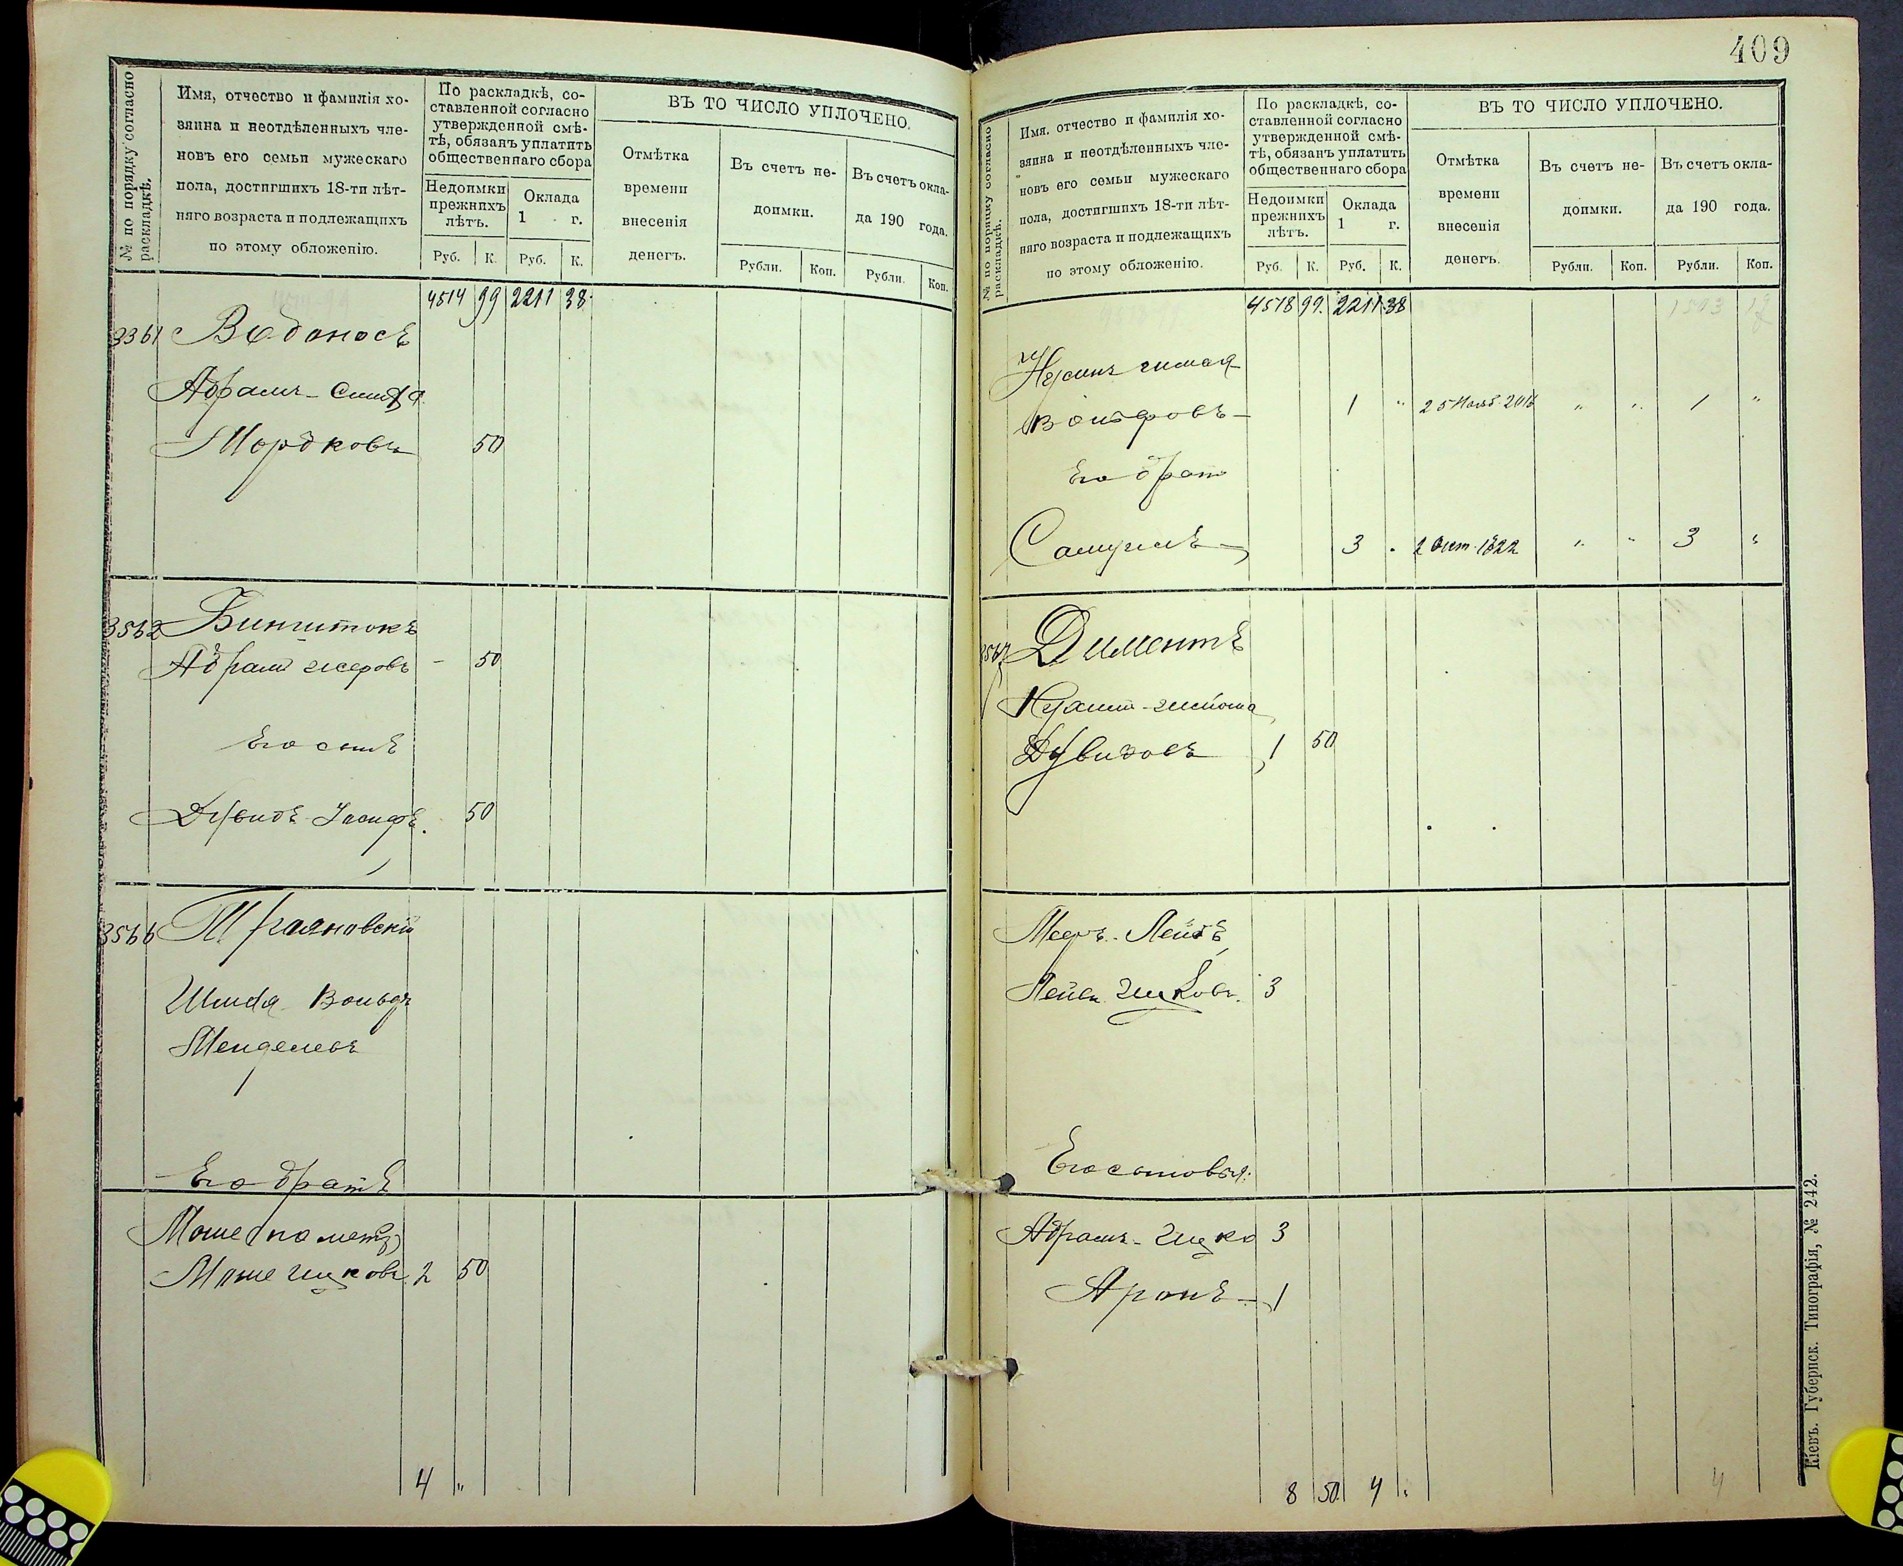 № по порядку согласно раскладкѣ.
Имя, отчество и фамилія хо-
зяина и неотдѣленныхъ чле-
новъ его семьи мужескаго
пола, достигшихъ 18-ти лѣт-
няго возраста и подлежащихъ
по этому обложенію.
По раскладкѣ, со-
ставленной согласно
утвержденной смѣ-
тѣ, обязанъ уплатить
общественнаго сбора
Недоимки
прежнихъ
лѣтъ.
Оклада
1 г.
Руб. К. Руб. К.
ВЪ ТО ЧИСЛО УПЛОЧЕНО.
Отмѣтка
времени
внесенія
денегъ.
Въ счетъ не-
доимки.
Рубли. Коп.
Въ счетъ окла-
да 190 года.
Рубли. Коп.
4514 99 2211 38
3361 Водоносъ
Абрамъ-
Мордковъ 50
3562 Бинштокъ
Абрамъ 50
Его сынъ
Дувидъ Іосифъ. 50
3566
Вольфъ
Менделевъ
Его братъ
Моше (по метр)
Моше Ицковъ 2 50
4 "
409
№ по порядку согласно раскладкѣ.
Имя. отчество и фамилія хо-
зяина и неотдѣленныхъ чле-
новъ его семьи мужескаго
пола, достигшихъ 18-ти лѣт-
няго возраста и подлежащихъ
по этому обложенію.
По раскладкѣ, со-
ставленной согласно
утвержденной смѣ-
тѣ, обязанъ уплатить
общественнаго сбора
Недоимки
прежнихъ
лѣтъ.
Оклада
1 г.
Руб. К. Руб. К.
ВЪ ТО ЧИСЛО УПЛОЧЕНО.
Отмѣтка
времени
внесенія
денегъ.
Въ счетъ не-
доимки.
Рубли. Коп.
Въ счетъ окла-
да 190 года.
Рубли. Коп.
4518 99. 2211 38
1 " " " 1 "
Его братъ
Самуилъ 3 " " 3 "
3567 Диментъ
Дувидовъ 1 50
Мееръ-Лейбъ
Ицковъ. 3
Его сыновья:
Абрамъ-Ицко 3
Аронъ - 1
8 50 4
4
Кіевъ. Губернск. Типографія, № 242.